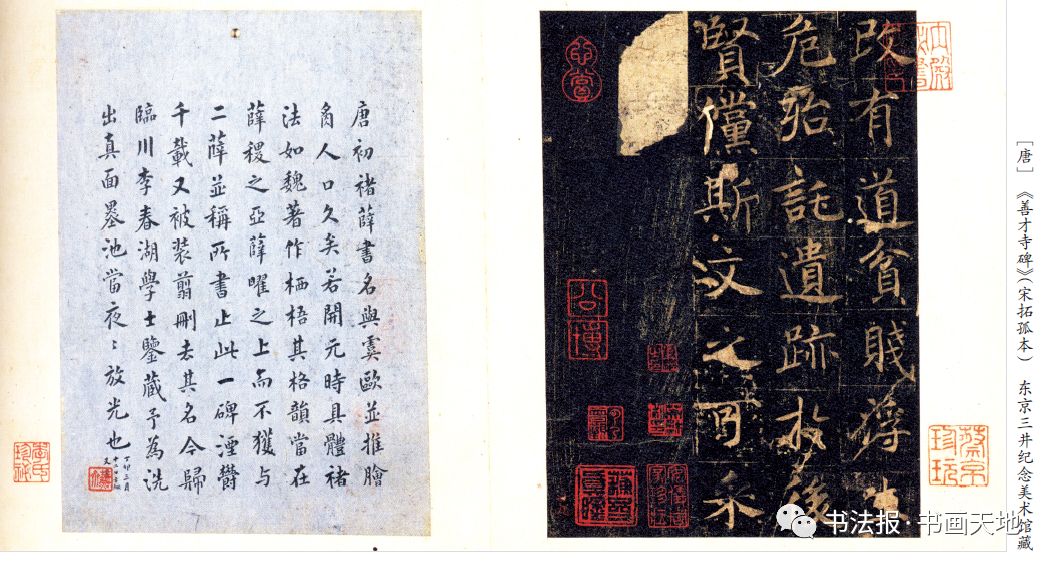 [唐] 《善才寺碑》(宋拓孤本) 东京三井纪念美术馆藏
改有道貧賤得
危殆託遺跡於後
賢儻斯文之可采
蔡京珍玩
公博
唐初褚薛書名與虞歐並推膾
炙人口久矣若開元時具體褚
法如魏著作栖梧其格韻當在
薛稷之亞薛曜之上而不獲与
二薛並稱所書止此一碑湮鬱
千載又被装翦刪去其名今歸
臨川李春湖學士鑒藏予為洗
出真面墨池當夜〻放光也
丁卯三月
李氏珍秘
书法报·书画天地